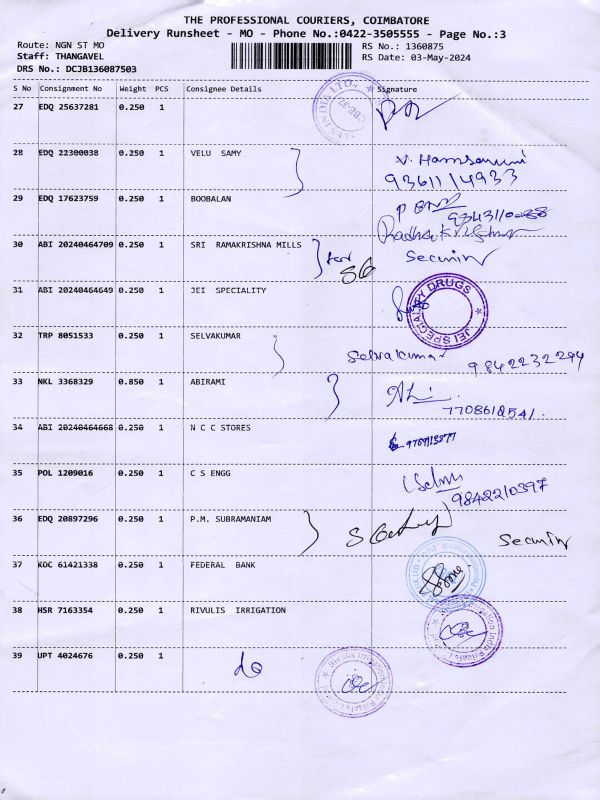 THE PROFESSIONAL COURIERS, COIMBATORE
Delivery Runsheet - MO - Phone No.:0422-3505555 - Page No.:3
Route: NGN ST MO
RS No.: 1360875
Staff: THANGAVEL
RS Date: 03-May-2024
DRS No.: DCJB136087503
S No Consignment No Weight PCS Consignee Details Signature
27 EDQ 25637281 0.250 1
28 EDQ 22300038 0.250 1 VELU SAMY
9361114933
29 EDQ 17623759 0.250 1 BOOBALAN
Radhakrishnan
30 ABI 20240464709 0.250 1 SRI RAMAKRISHNA MILLS
for SG
Security
31 ABI 20240464649 0.250 1 JEI SPECIALITY
JEI SPECIALITY DRUGS
32 TRP 8051533 0.250 1 SELVAKUMAR
Selvakumar 9842232294
33 NKL 3368329 0.850 1 ABIRAMI
7708618541.
34 ABI 20240464668 0.250 1 N C C STORES
35 POL 1209016 0.250 1 C S ENGG
9842210397
36 EDQ 20897296 0.250 1 P.M. SUBRAMANIAM
Security
37 KOC 61421338 0.250 1 FEDERAL BANK
38 HSR 7163354 0.250 1 RIVULIS IRRIGATION
39 UPT 4024676 0.250 1
do